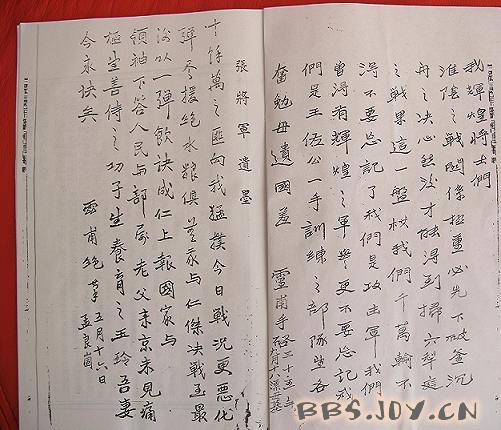 我輝煌將士們
淮陰之戰關係招重必先下破釜沉
舟之决心然後才能得到掃穴犁庭
之戰果這一盤杖我們千萬輸不
得不要忘記了我們是攻击軍我們
曾得有輝煌之軍譽更不要忘記我
們是王佐公一手訓練之部隊望各
奮勉毋遺國羞 靈甫手啓
九月十八漂母墓
張將軍遺墨
十餘萬之匪向我猛撲今日戰況更惡化
彈尽援絕水糧俱無家与仁傑決戰至最
後以一彈飲訣成仁上報國家与
領袖下答人民与部屬老父来京未見痛
極望善待之幼子望養育之玉玲吾妻
今永訣矣
靈甫絕筆 五月十六日
孟良崮
BBS.JOY.CN